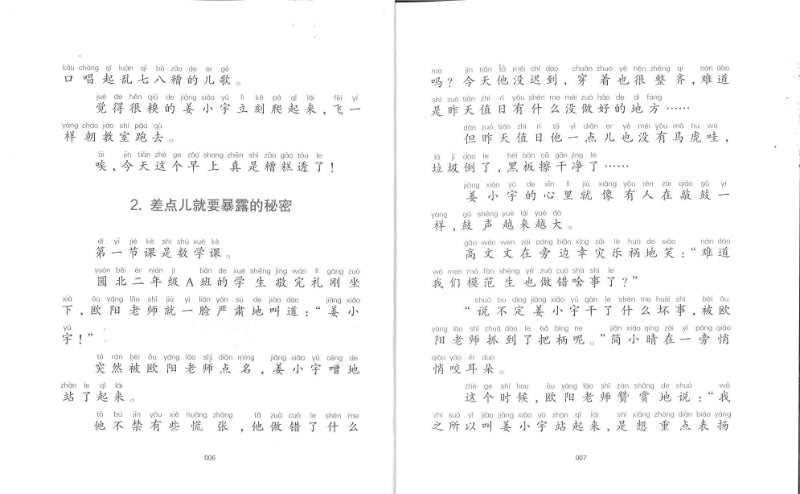 kǒu chàng qǐ luàn qī bā zāo de ér gē
口唱起乱七八糟的儿歌。
jué de hěn qiǔ de jiāng xiǎo yǔ lì kè pá qǐ lái fēi yí
觉得很糗的姜小宇立刻爬起来，飞一
yàng cháo jiào shì pǎo qù
样朝教室跑去。
āi jīn tiān zhè ge zǎo shang zhēn shì zāo gāo tòu le
唉，今天这个早上真是糟糕透了！
2. 差点儿就要暴露的秘密
dì yī jié kè shì shù xué kè
第一节课是数学课。
yuán běi èr nián jí bān de xué shēng jìng wán lǐ gāng zuò
圆北二年级A班的学生敬完礼刚坐
xià ōu yáng lǎo shī jiù yì liǎn yán sù de jiào dào jiāng xiǎo
下，欧阳老师就一脸严肃地叫道：“姜小
yǔ
宇！”
tū rán bèi ōu yáng lǎo shī diǎn míng jiāng xiǎo yǔ cēng de
突然被欧阳老师点名，姜小宇噌地
zhàn le qǐ lái
站了起来。
tā bù jīn yǒu xiē huāng zhāng tā zuò cuò le shén me
他不禁有些慌张，他做错了什么
006
ma jīn tiān tā méi chí dào chuān zhuó yě hěn zhěng qí nán dào
吗？今天他没迟到，穿着也很整齐，难道
shì zuó tiān zhí rì yǒu shén me méi zuò hǎo de dì fang
是昨天值日有什么没做好的地方……
dàn zuó tiān zhí rì tā yì diǎn er yě méi yǒu mǎ hu wa
但昨天值日他一点儿也没有马虎哇，
lā jī dào le hēi bǎn cā gān jìng le
垃圾倒了，黑板擦干净了……
jiāng xiǎo yǔ de xīn li jiù xiàng yǒu rén zài qiāo gǔ yí
姜小宇的心里就像有人在敲鼓一
yàng gǔ shēng yuè lái yuè dà
样，鼓声越来越大。
gāo wén wen zài páng biān xìng zāi lè huò de xiào nán dào
高文文在旁边幸灾乐祸地笑：“难道
wǒ men mó fàn shēng yě zuò cuò shá shì le
我们模范生也做错啥事了？”
shuō bu dìng jiāng xiǎo yǔ gàn le shén me huài shì bèi ōu
“说不定姜小宇干了什么坏事，被欧
yáng lǎo shī zhuā dào le bǎ bǐng ne jiǎn xiǎo qíng zài yì páng qiǎo
阳老师抓到了把柄呢。”简小晴在一旁悄
qiāo yǎo ěr duo
悄咬耳朵。
zhè ge shí hou ōu yáng lǎo shī zàn shǎng de shuō wǒ
这个时候，欧阳老师赞赏地说：“我
zhī suǒ yǐ jiào jiāng xiǎo yǔ zhàn qǐ lái shì xiǎng zhòng diǎn biǎo yáng
之所以叫姜小宇站起来，是想重点表扬
007